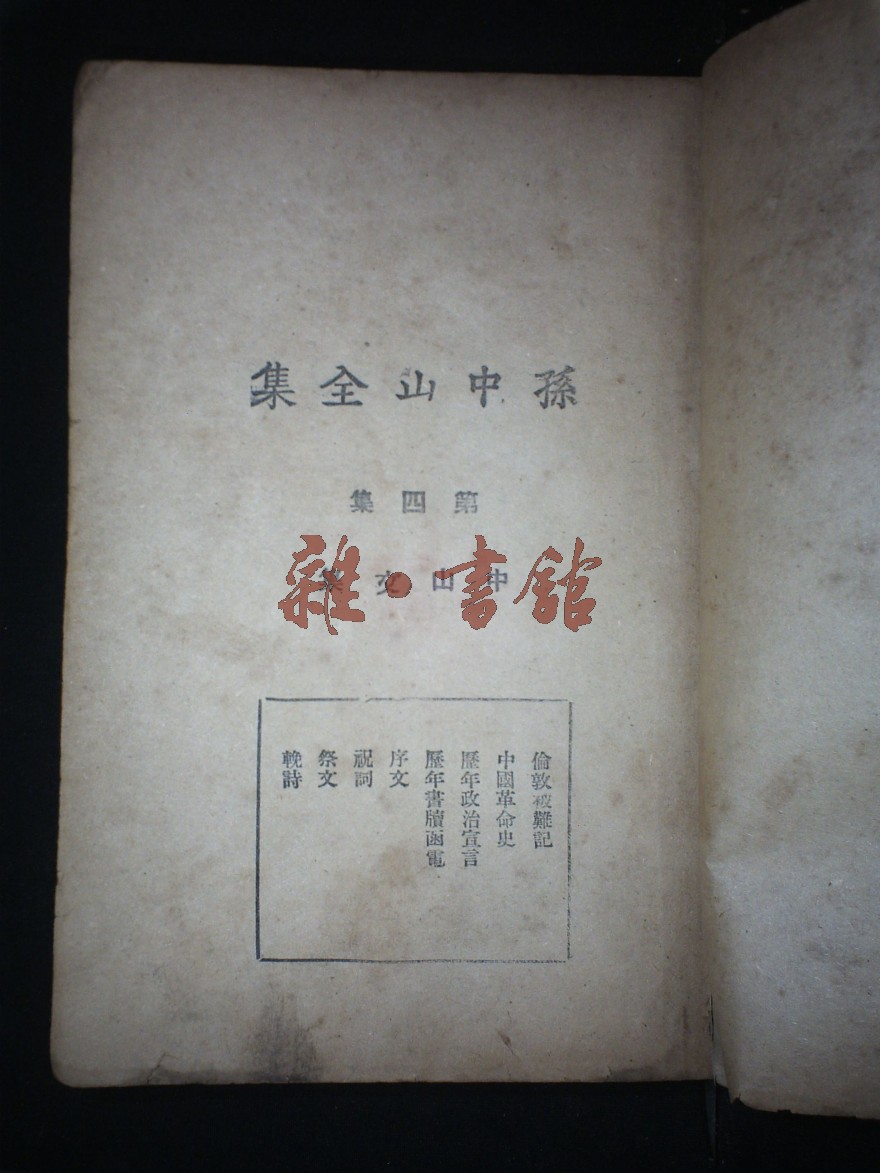 孫中山全集
第四集
中山文集
雜·書館
倫敦被難記
中國革命史
歷年政治宣言
歷年書牘函電
序文
祝詞
祭文
輓詩